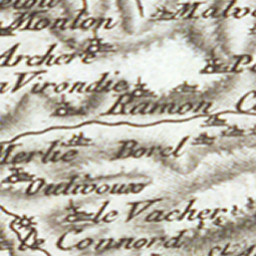 Monlon
Malv
Archere
Virondie
Ramon
Merlie Borel
Oudivoux
le Vacher
le Connord